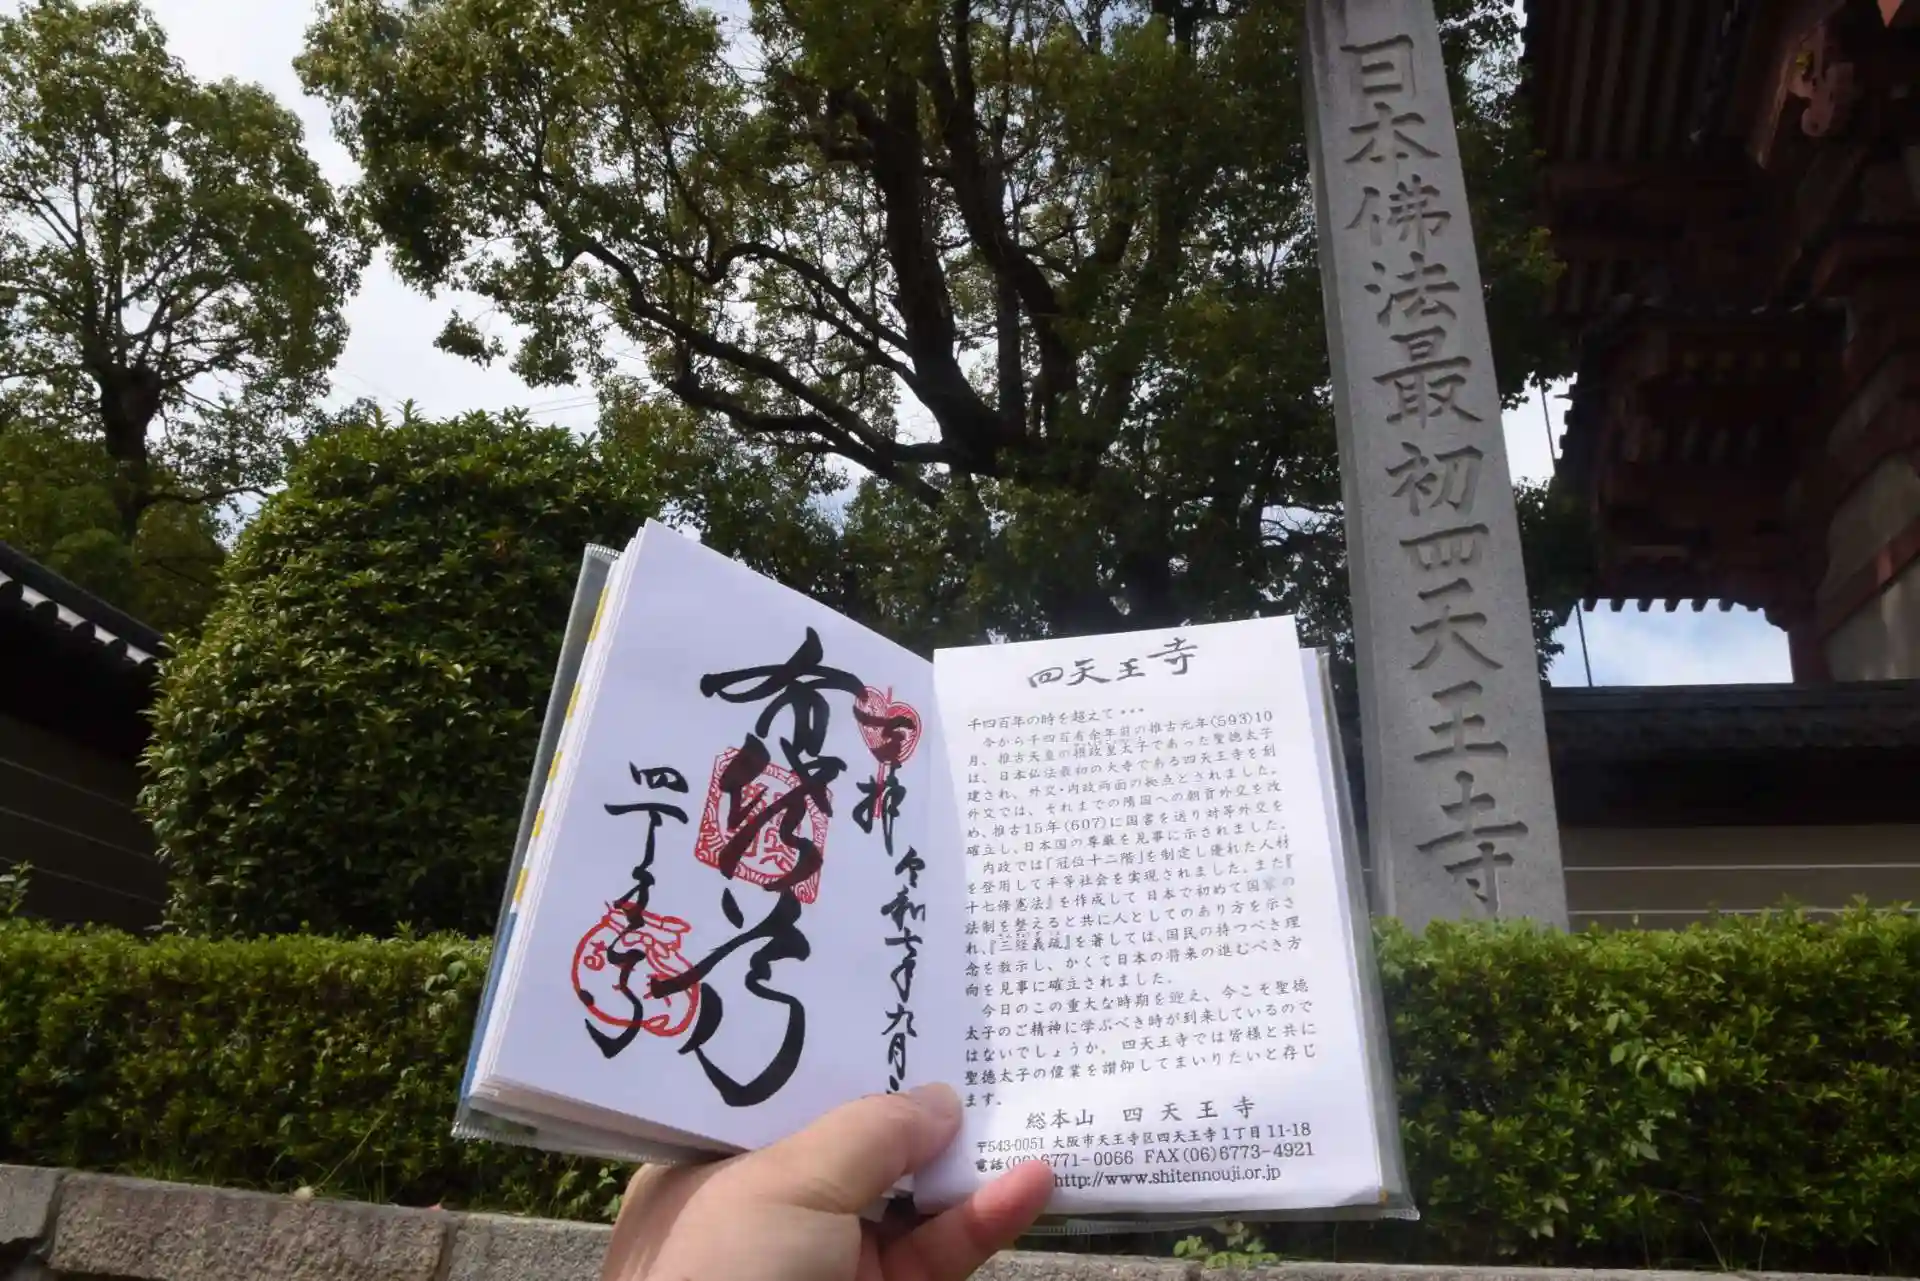 日本佛法最初四天王寺
奉拝
令和七年九月
布袋尊
四天王寺
四天王寺
千四百年の時を超えて・・・
今から千四百有余年前の推古元年(593)10
月、推古天皇の摂政皇太子であった聖徳太子
は、日本仏法最初の大寺である四天王寺を創
建され、外交・内政両面の拠点とされました。
外交では、それまでの隋国への朝貢外交を改
め、推古15年(607)に国書を送り対等外交を
確立し、日本国の尊厳を見事に示されました。
内政では「冠位十二階」を制定し優れた人材
を登用して平等社会を実現されました。また『
十七條憲法』を作成して 日本で初めて国家の
法制を整えると共に人としてのあり方を示さ
れ、『三経義疏』を著しては、国民の持つべき理
念を教示し、かくて日本の将来の進むべき方
向を見事に確立されました。
今日のこの重大な時期を迎え、今こそ聖徳
太子のご精神に学ぶべき時が到来しているので
はないでしょうか。四天王寺では皆様と共に
聖徳太子の偉業を讃仰してまいりたいと存じ
ます。
総本山 四天王寺
〒543-0051 大阪市天王寺区四天王寺1丁目11-18
電話(06)6771-0066 FAX(06)6773-4921
http://www.shitennouji.or.jp